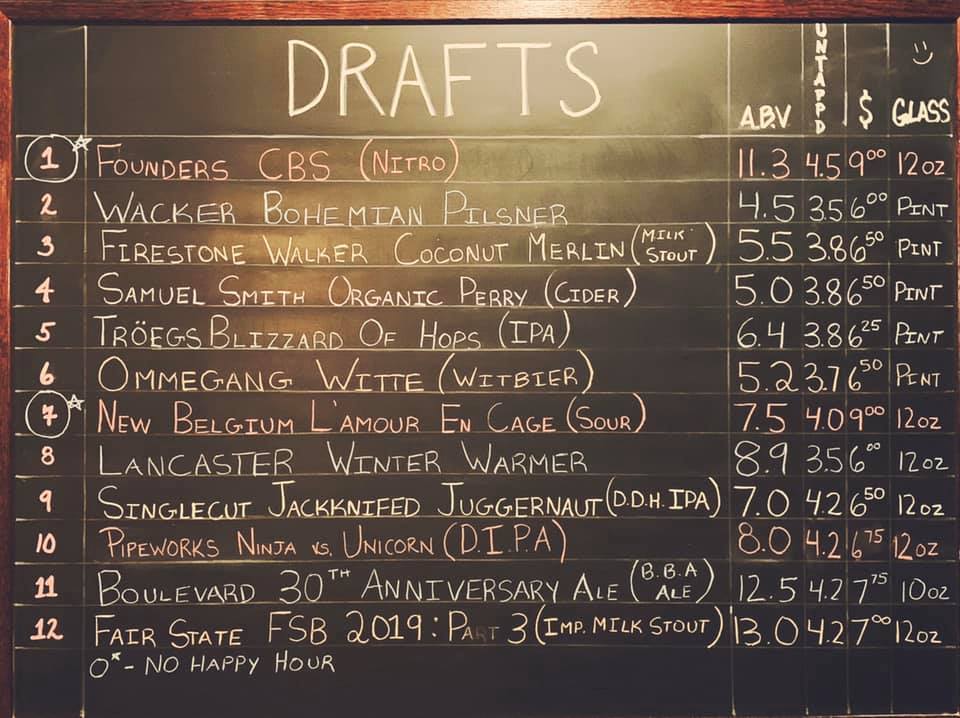 DRAFTS A.B.V UNTAPP'D $ GLASS
1 FOUNDERS CBS (NITRO) 11.3 4.5 9.00 12oz
2 WACKER BOHEMIAN PILSNER 4.5 3.5 6.00 PINT
3 FIRESTONE WALKER COCONUT MERLIN (MILK STOUT) 5.5 3.8 6.50 PINT
4 SAMUEL SMITH ORGANIC PERRY (CIDER) 5.0 3.8 6.50 PINT
5 TRÖEGS BLIZZARD OF HOPS (IPA) 6.4 3.8 6.25 PINT
6 OMMEGANG WITTE (WITBIER) 5.2 3.7 6.50 PINT
7 NEW BELGIUM L'AMOUR EN CAGE (SOUR) 7.5 4.0 9.00 12oz
8 LANCASTER WINTER WARMER 8.9 3.5 6.00 12oz
9 SINGLECUT JACKKNIFED JUGGERNAUT (D.D.H. IPA) 7.0 4.2 6.50 12oz
10 PIPEWORKS NINJA VS. UNICORN (D.I.P.A) 8.0 4.2 6.75 12oz
11 BOULEVARD 30TH ANNIVERSARY ALE (B.B.A ALE) 12.5 4.2 7.75 10oz
12 FAIR STATE FSB 2019: PART 3 (IMP. MILK STOUT) 13.0 4.2 7.00 12oz
O* - NO HAPPY HOUR